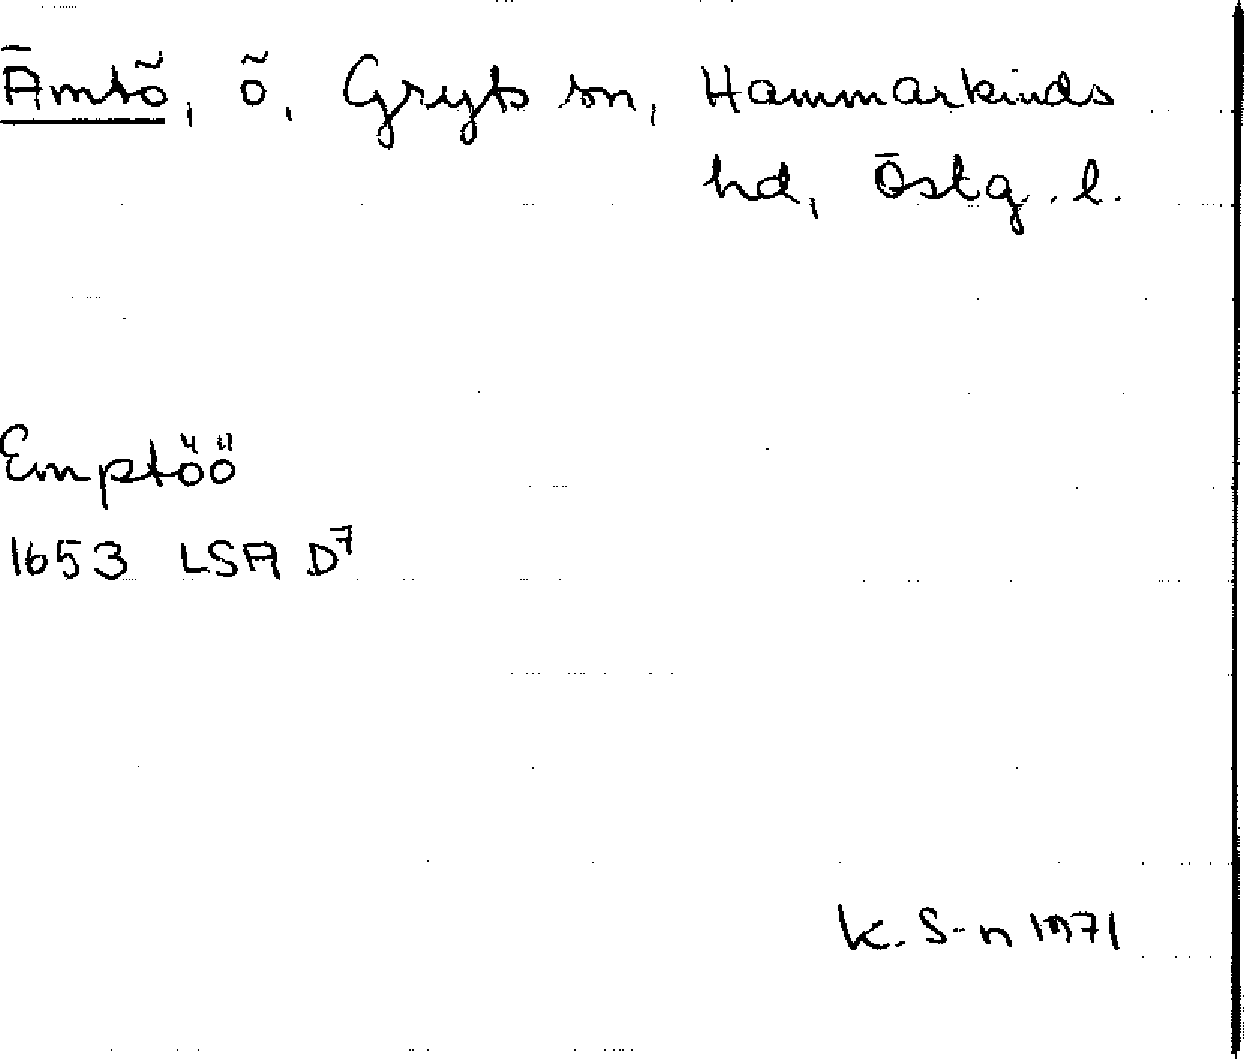 Ämtö, ö, Gryts sn, Hammarkinds
hd, Östg. l.
Emptöö
1653 LSA D7
K. S-n 1971